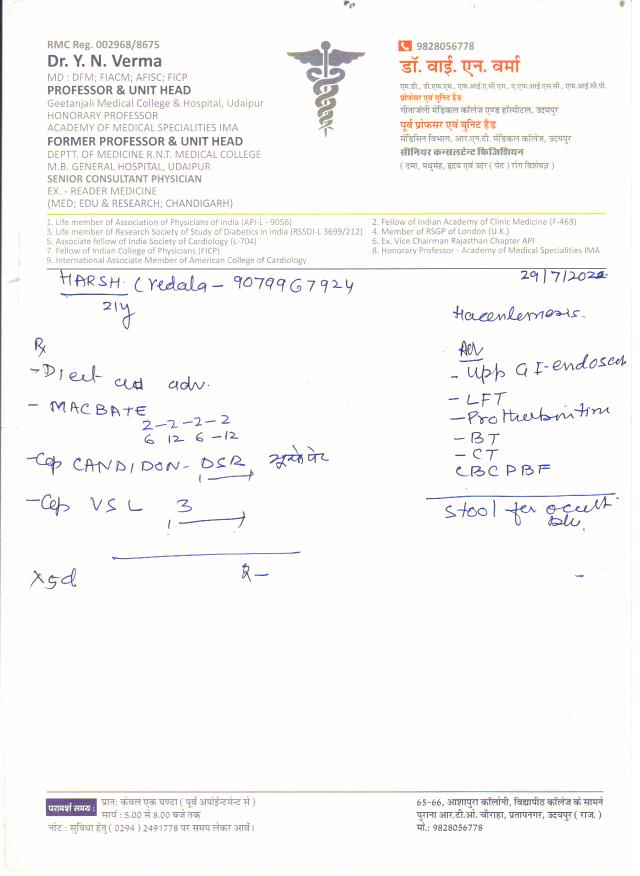 RMC Reg. 002968/8675
Dr. Y. N. Verma
MD : DFM; FIACM; AFISC; FICP
PROFESSOR & UNIT HEAD
Geetanjali Medical College & Hospital, Udaipur
HONORARY PROFESSOR
ACADEMY OF MEDICAL SPECIALITIES IMA
FORMER PROFESSOR & UNIT HEAD
DEPTT. OF MEDICINE R.N.T. MEDICAL COLLEGE
M.B. GENERAL HOSPITAL, UDAIPUR
SENIOR CONSULTANT PHYSICIAN
EX. - READER MEDICINE
(MED; EDU & RESEARCH; CHANDIGARH)
9828056778
डॉ. वाई. एन. वर्मा
एम.डी., डी.एफ.एम., एफ.आई.ए.सी.एम., ए.एफ.आई.एस.सी., एफ.आई.सी.पी.
प्रोफेसर एवं यूनिट हैड
गीतांजली मेडिकल कॉलेज एण्ड हॉस्पीटल, उदयपुर
पूर्व प्रोफेसर एवं यूनिट हैड
मेडिसिन विभाग, आर.एन.टी. मेडिकल कॉलेज, उदयपुर
सीनियर कन्सलटेन्ट फिजिशियन
( दमा, मधुमेह, हृदय एवं उदर ( पेट ) रोग विशेषज्ञ )
1. Life member of Association of Physicians of India (API-L - 9056)
2. Fellow of Indian Academy of Clinic Medicine (F-463)
3. Life member of Research Society of Study of Diabetics in India (RSSDI-L 3699/212)
4. Member of RSGP of London (U.K.)
5. Associate fellow of India Society of Cardiology (L-704)
6. Ex. Vice Chairman Rajasthan Chapter API
7. Fellow of Indian College of Physicians (FICP)
8. Honorary Professor - Academy of Medical Specialities IMA
9. International Associate Member of American College of Cardiology
HARSH (Vedala - 9079967924
21y
29/7/202
Rx
- Diect adv.
- MACBATE
2-2-2-2
6 12 6 -12
- Cap CANDIDON-DSR
1
- Cap VSL 3
1
x5d
Adv
- Upp GI-endoscop
- LFT
- BT
- CT
CBC PBF
Stool for occult
प्रातः केवल एक घण्टा ( पूर्व अपॉईन्टमेन्ट से )
परामर्श समय :
सायं : 5.00 से 8.00 बजे तक
नोट : सुविधा हेतु ( 0294 ) 2491778 पर समय लेकर आवें।
65-66, आशापुरा कॉलोनी, विद्यापीठ कॉलेज के सामने
पुराना आर.टी.ओ. चौराहा, प्रतापनगर, उदयपुर ( राज. )
मो.: 9828056778